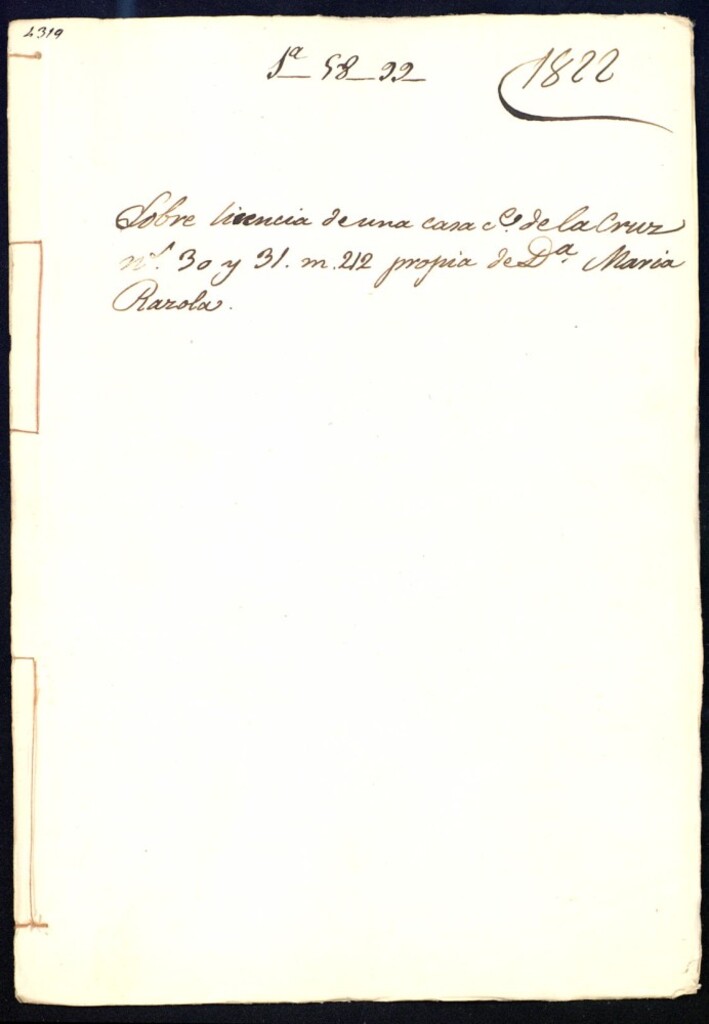 4319
1ª 58_99
1822
Sobre licencia de una casa C.e de la Cruz
n.s 30 y 31. m. 212 propia de D.ª Maria
Razola.